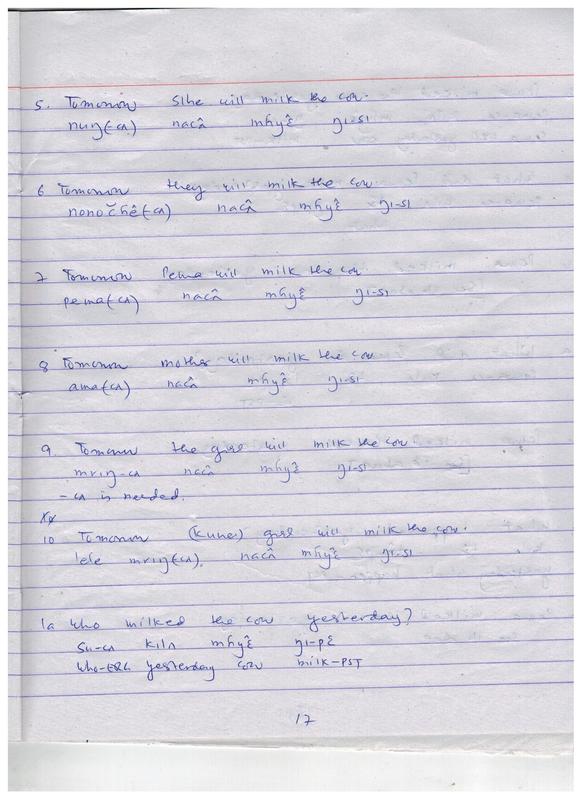 5. Tomorrow s/he will milk the cow.
nuŋ(-cʌ) nacʌ̂ mɦyɛ̂ ŋı-sı
6 Tomorrow they will milk the cow
nonočɦê(-cʌ) nacʌ̂ mɦyɛ̂ ŋı-sı
7 Tomorrow Pema will milk the cow
pema(-cʌ) nacʌ̂ mɦyɛ̂ ŋı-sı
8 Tomorrow mother will milk the cow
ama(-cʌ) nacʌ̂ mɦyɛ̂ ŋı-sı
9. Tomorrow the girl will milk the cow
mrıŋ-cʌ nacʌ̂ mɦyɛ̂ ŋı-sı
-cʌ is needed.
10 Tomorrow (Kunes) girl will milk the cow.
'ele mrıŋ(-cʌ). nacʌ̂ mɦyɛ̂ ŋı-sı
1a who milked the cow yesterday?
su-cʌ kılʌ mɦyɛ̂ ŋı-pɛ
who-ERG yesterday cow milk-PST
17